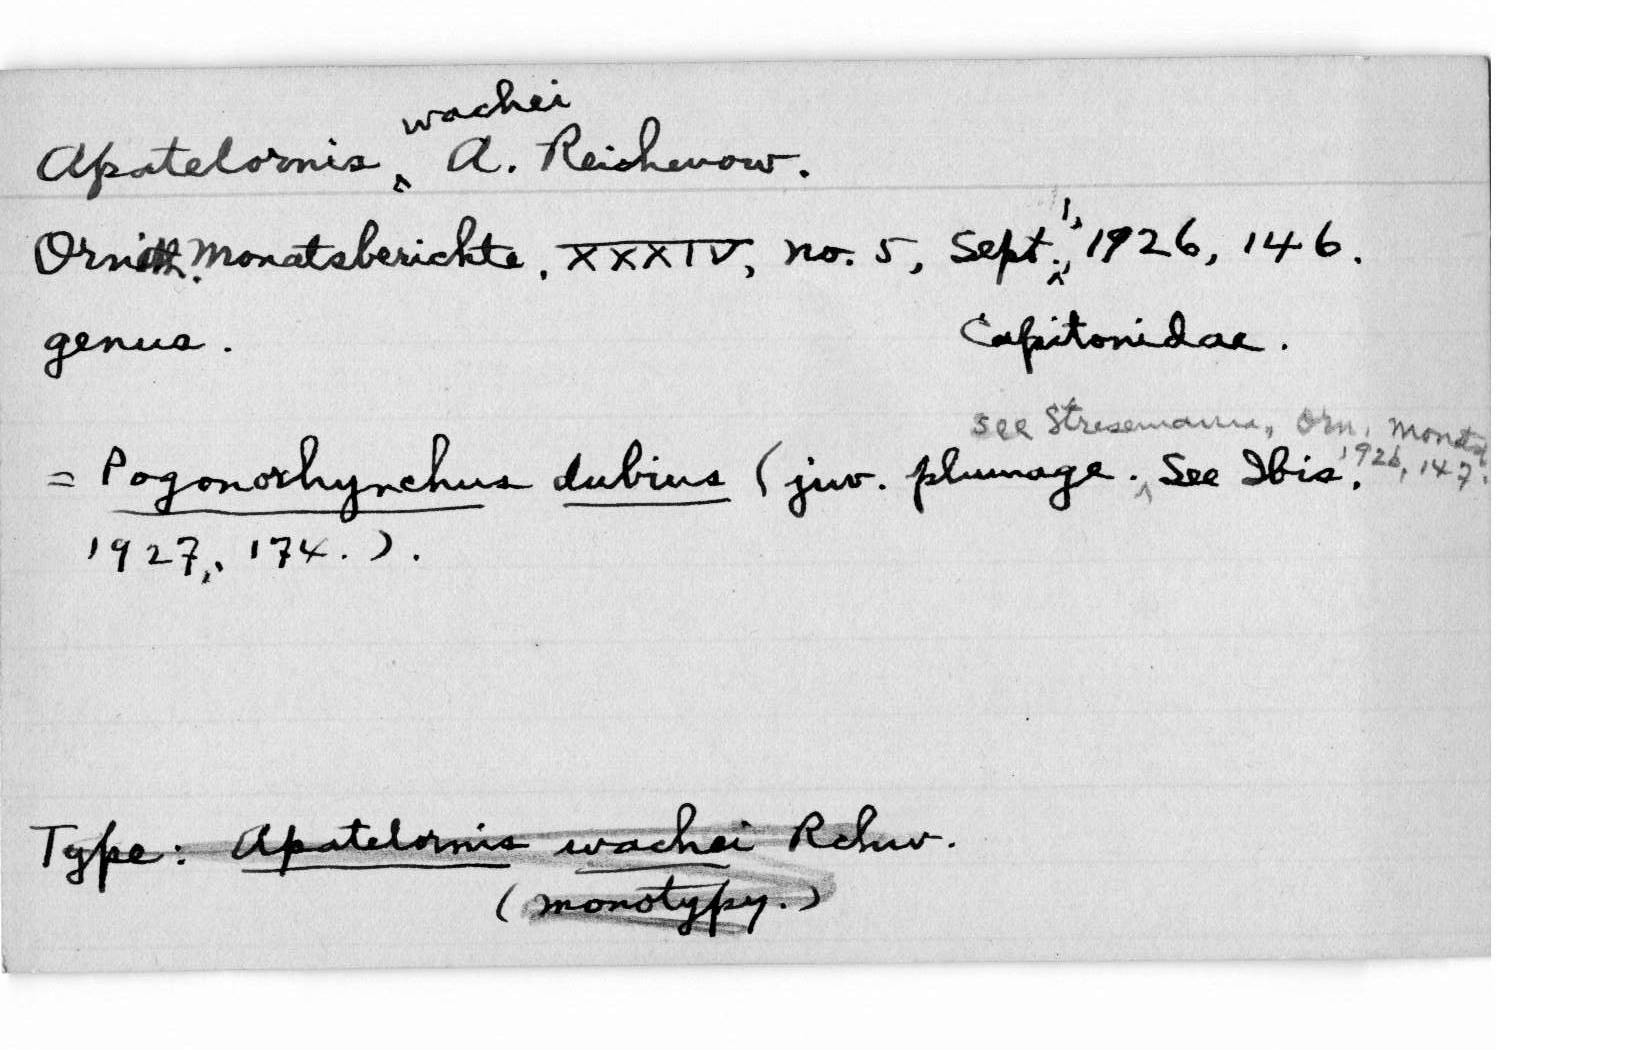 wachei
Apatelornis ‸ A. Reichenow.
Ornith. Monatsberichte, XXXIV, no. 5, Sept. 1, 1926, 146.
genus. Capitonidae.
see Stresemann, Orn. Monatsb.
= Pogonorhynchus dubius (juv. plumage. ‸ See Ibis, 1926, 147.
1927, 174.).
Type: Apatelornis wachei Rchw.
(monotypy.)